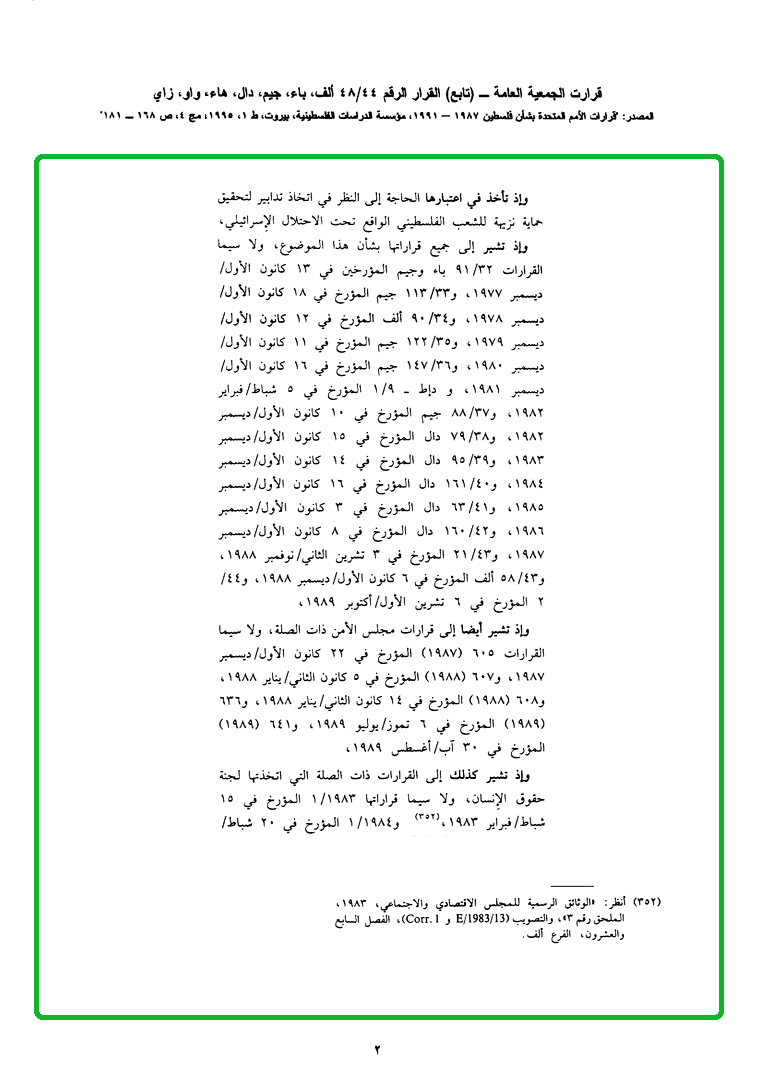 قرارت الجمعية العامة ــ (تابع) القرار الرقم ٤٨/٤٤ ألف، باء، جيم، دال، هاء، واو، زاي
المصدر: "قرارات الأمم المتحدة بشأن فلسطين ١٩٨٧ – ١٩٩١، مؤسسة الدراسات الفلسطينية، بيروت، ط ١، ١٩٩٥، مج ٤، ص ١٦٨ ــ ١٨١"
وإذ تأخذ في اعتبارها الحاجة إلى النظر في اتخاذ تدابير لتحقيق
حماية نزيهة للشعب الفلسطيني الواقع تحت الاحتلال الإسرائيلي،
وإذ تشير إلى جميع قراراتها بشأن هذا الموضوع، ولا سيما
القرارات ٩١/٣٢ باء وجيم المؤرخين في ١٣ كانون الأول/
ديسمبر ١٩٧٧، و١١٣/٣٣ جيم المؤرخ في ١٨ كانون الأول/
ديسمبر ١٩٧٨، و٩٠/٣٤ ألف المؤرخ في ١٢ كانون الأول/
ديسمبر ١٩٧٩، و١٢٢/٣٥ جيم المؤرخ في ١١ كانون الأول/
ديسمبر ١٩٨٠، و١٤٧/٣٦ جيم المؤرخ في ١٦ كانون الأول/
ديسمبر ١٩٨١، و دإط ـ ١/٩ المؤرخ في ٥ شباط/فبراير
١٩٨٢، و٨٨/٣٧ جيم المؤرخ في ١٠ كانون الأول/ديسمبر
١٩٨٢، و٧٩/٣٨ دال المؤرخ في ١٥ كانون الأول/ديسمبر
١٩٨٣، و٩٥/٣٩ دال المؤرخ في ١٤ كانون الأول/ديسمبر
١٩٨٤، و١٦١/٤٠ دال المؤرخ في ١٦ كانون الأول/ديسمبر
١٩٨٥، و٦٣/٤١ دال المؤرخ في ٣ كانون الأول/ديسمبر
١٩٨٦، و١٦٠/٤٢ دال المؤرخ في ٨ كانون الأول/ديسمبر
١٩٨٧، و٢١/٤٣ المؤرخ في ٣ تشرين الثاني/نوفمبر ١٩٨٨،
و٥٨/٤٣ ألف المؤرخ في ٦ كانون الأول/ديسمبر ١٩٨٨، و٤٤/
٢ المؤرخ في ٦ تشرين الأول/أكتوبر ١٩٨٩،
وإذ تشير أيضا إلى قرارات مجلس الأمن ذات الصلة، ولا سيما
القرارات ٦٠٥ (١٩٨٧) المؤرخ في ٢٢ كانون الأول/ديسمبر
١٩٨٧، و٦٠٧ (١٩٨٨) المؤرخ في ٥ كانون الثاني/يناير ١٩٨٨،
و٦٠٨ (١٩٨٨) المؤرخ في ١٤ كانون الثاني/يناير ١٩٨٨، و٦٣٦
(١٩٨٩) المؤرخ في ٦ تموز/يوليو ١٩٨٩، و٦٤١ (١٩٨٩)
المؤرخ في ٣٠ آب/أغسطس ١٩٨٩،
وإذ تشير كذلك إلى القرارات ذات الصلة التي اتخذتها لجنة
حقوق الإنسان، ولا سيما قراراتها ١/١٩٨٣ المؤرخ في ١٥
شباط/فبراير ١٩٨٣،(٣٥٢) و١/١٩٨٤ المؤرخ في ٢٠ شباط/
(٣٥٢) أنظر: «الوثائق الرسمية للمجلس الاقتصادي والاجتماعي، ١٩٨٣،
الملحق رقم ٣»، والتصويب (E/1983/13 و Corr.1)، الفصل السابع
والعشرون، الفرع ألف.
٢